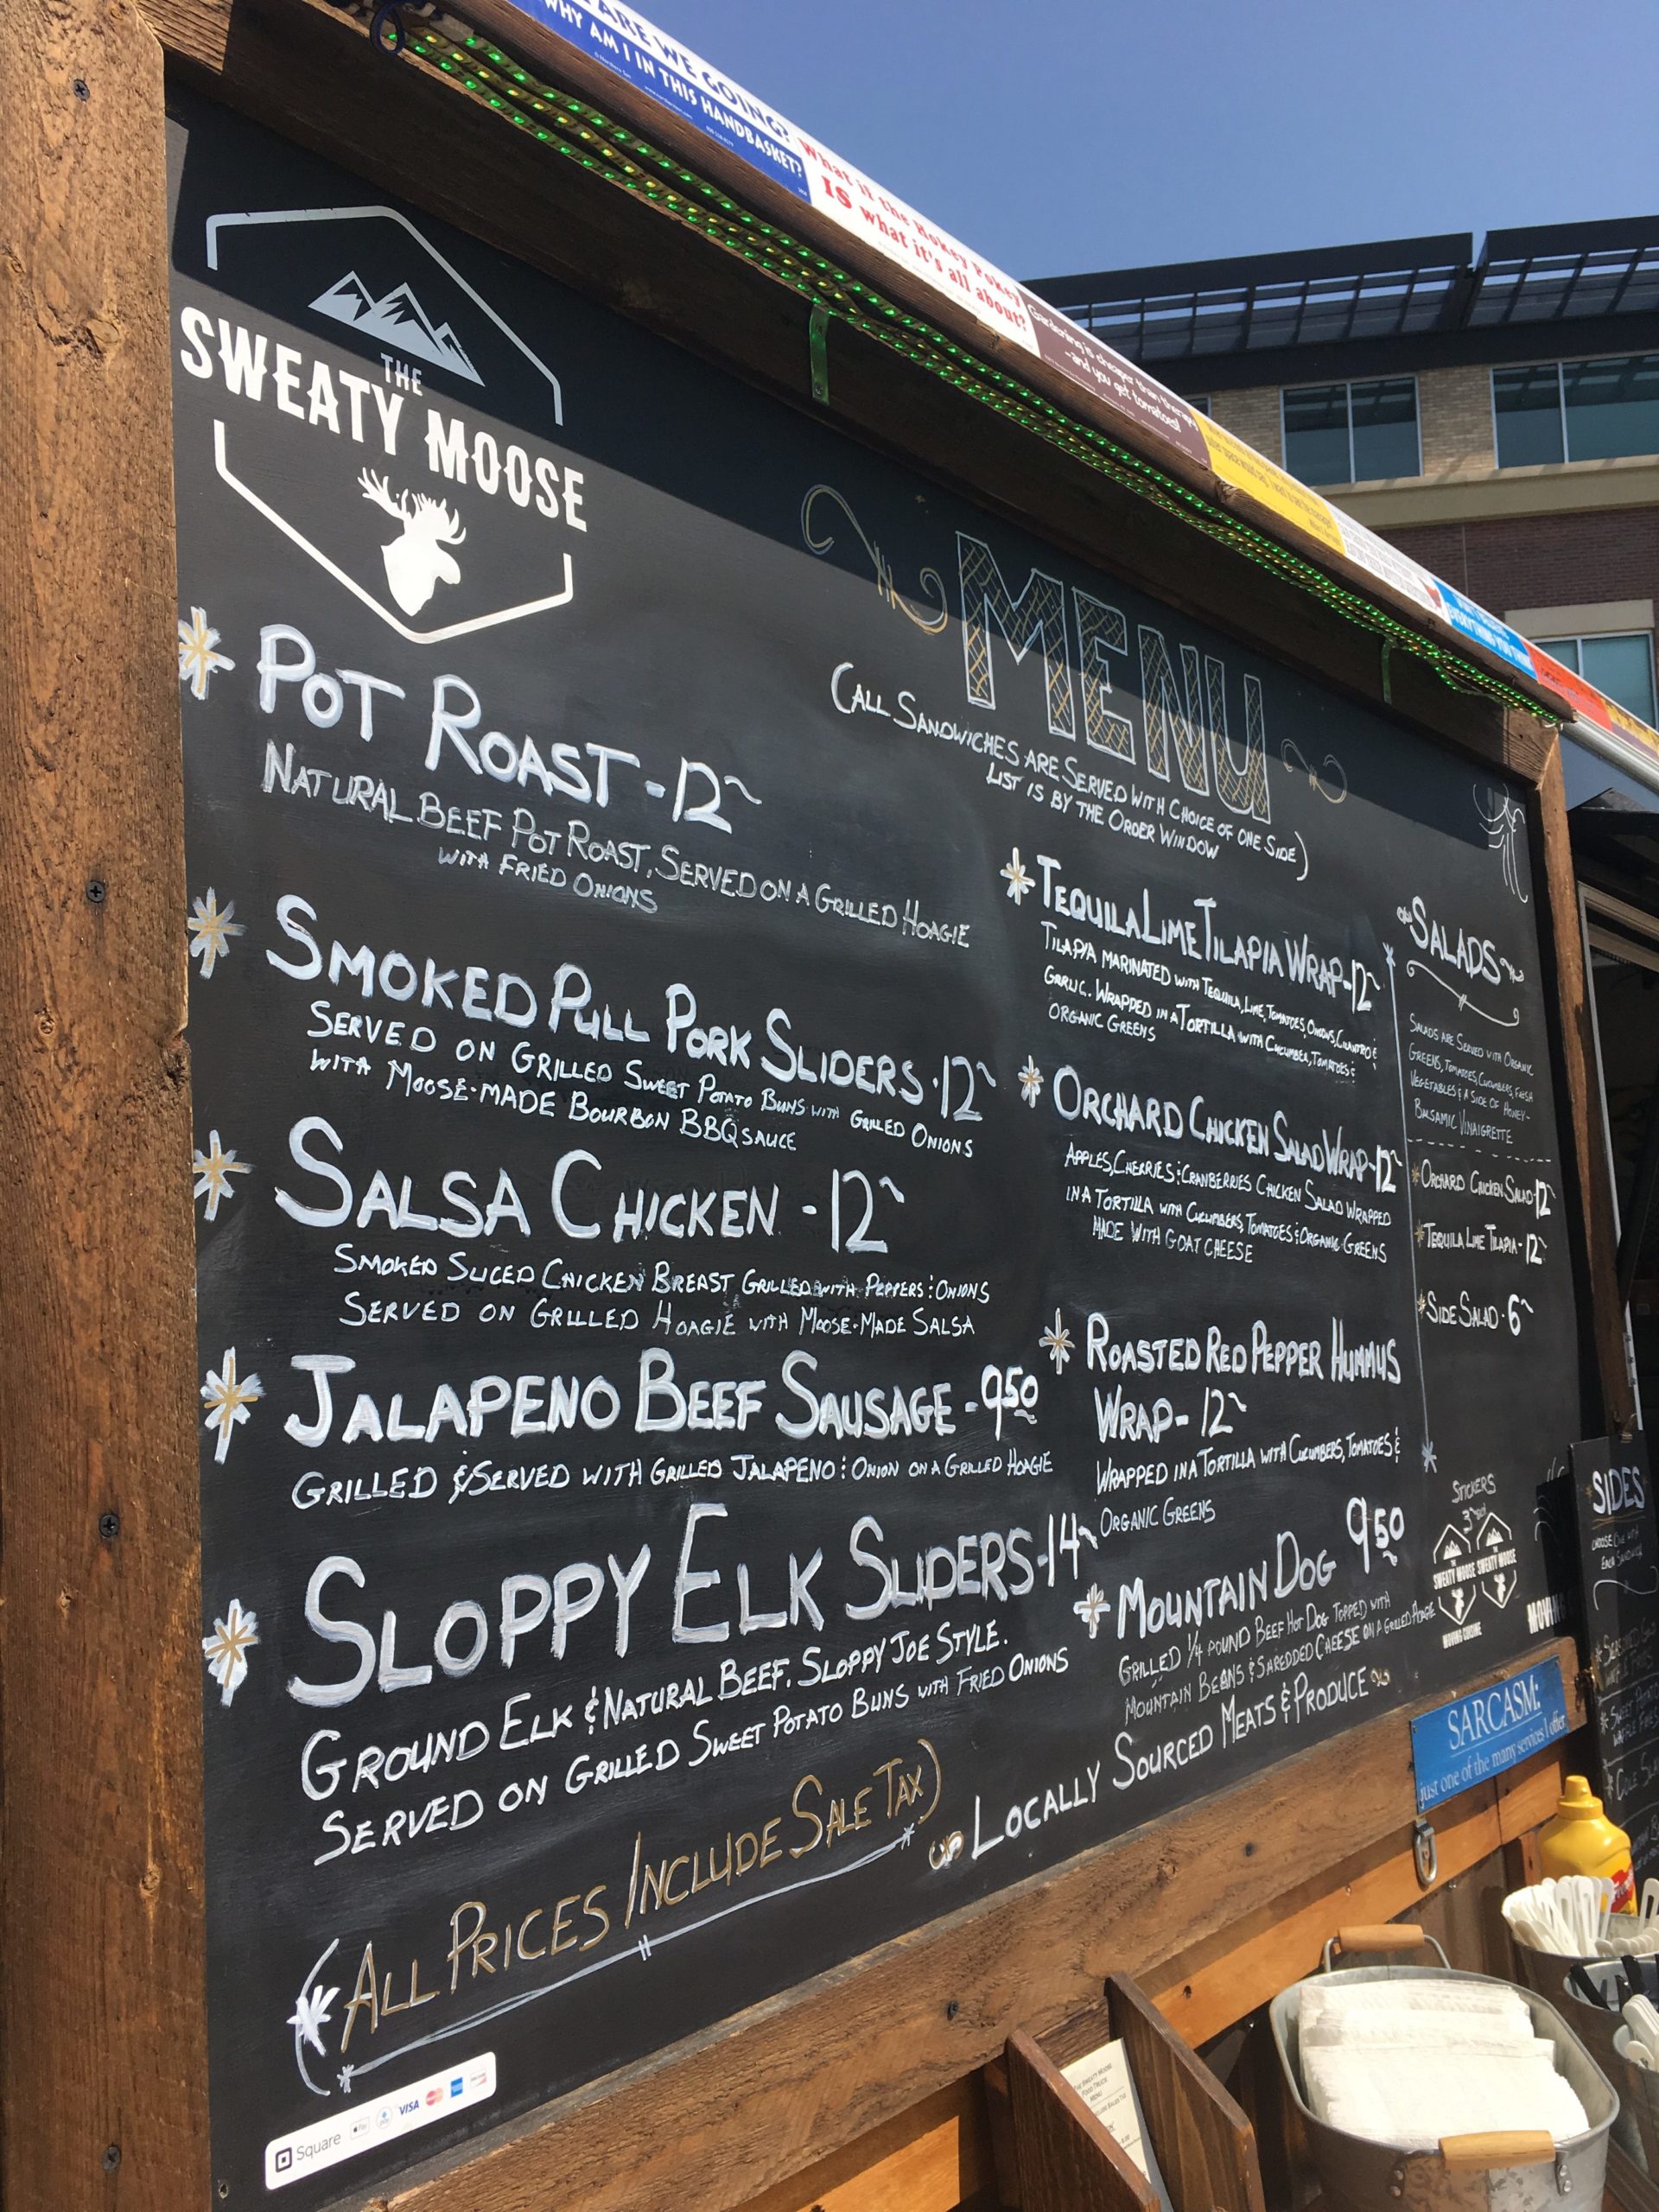 ARE WE GOING?
WHY AM I IN THIS HANDBASKET?
What if the Hokey Pokey
IS what it's all about?
Gardening is cheaper than therapy
-and you get tomatoes!
EVERYTHING YOU THINK
THE
SWEATY MOOSE
MENU
(ALL SANDWICHES ARE SERVED WITH CHOICE OF ONE SIDE)
LIST IS BY THE ORDER WINDOW
POT ROAST - 12
NATURAL BEEF POT ROAST, SERVED ON A GRILLED HOAGIE
WITH FRIED ONIONS
SMOKED PULL PORK SLIDERS · 12
SERVED ON GRILLED SWEET POTATO BUNS WITH GRILLED ONIONS
WITH MOOSE-MADE BOURBON BBQ SAUCE
SALSA CHICKEN - 12
SMOKED SLICED CHICKEN BREAST GRILLED WITH PEPPERS & ONIONS
SERVED ON GRILLED HOAGIE WITH MOOSE-MADE SALSA
JALAPENO BEEF SAUSAGE - 9 50
GRILLED & SERVED WITH GRILLED JALAPENO & ONION ON A GRILLED HOAGIE
SLOPPY ELK SLIDERS - 14
GROUND ELK & NATURAL BEEF. SLOPPY JOE STYLE.
SERVED ON GRILLED SWEET POTATO BUNS WITH FRIED ONIONS
(ALL PRICES INCLUDE SALE TAX)
TEQUILA LIME TILAPIA WRAP - 12
TILAPIA MARINATED WITH TEQUILA, LIME, TOMATOES, ONIONS, CILANTRO &
GARLIC. WRAPPED IN A TORTILLA WITH CUCUMBER, TOMATOES &
ORGANIC GREENS
ORCHARD CHICKEN SALAD WRAP - 12
APPLES, CHERRIES & CRANBERRIES CHICKEN SALAD WRAPPED
IN A TORTILLA WITH CUCUMBERS, TOMATOES & ORGANIC GREENS
MADE WITH GOAT CHEESE
ROASTED RED PEPPER HUMMUS
WRAP - 12
WRAPPED IN A TORTILLA WITH CUCUMBERS, TOMATOES &
ORGANIC GREENS
MOUNTAIN DOG 9 50
GRILLED 1/4 POUND BEEF HOT DOG TOPPED WITH
MOUNTAIN BEANS & SHREDDED CHEESE ON A GRILLED HOAGIE
LOCALLY SOURCED MEATS & PRODUCE
SALADS
SALADS ARE SERVED WITH ORGANIC
GREENS, TOMATOES, CUCUMBERS, FRESH
VEGETABLES & A SIDE OF HONEY-
BALSAMIC VINAIGRETTE
ORCHARD CHICKEN SALAD - 12
TEQUILA LIME TILAPIA - 12
SIDE SALAD · 6
STICKERS
SWEATY MOOSE SWEATY MOOSE
MOVING CUISINE
MOVING
SARCASM:
just one of the many services I offer
SIDES
CHOOSE ONE WITH
EACH SANDWICH
Square Pay VISA